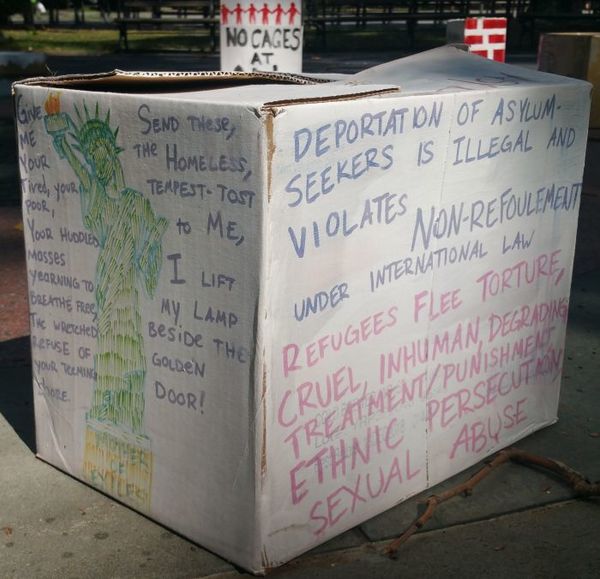 NO CAGES
AT
GIVE
ME
YOUR
Tired, your
POOR,
YOUR HUDDLED
MASSES
YEARNING TO
BREATHE FREE,
THE WRETCHED
REFUSE OF
YOUR TEEMING
SHORE.
SEND THESE,
THE HOMELESS,
TEMPEST-TOST
to ME,
I LIFT
MY LAMP
BESIDE THE
GOLDEN
DOOR!
MOTHER
OF
EXILES
DEPORTATION OF ASYLUM-
SEEKERS IS ILLEGAL AND
VIOLATES NON-REFOULEMENT
UNDER INTERNATIONAL LAW
REFUGEES FLEE TORTURE,
CRUEL, INHUMAN, DEGRADING
TREATMENT/PUNISHMENT
ETHNIC PERSECUTION,
SEXUAL ABUSE